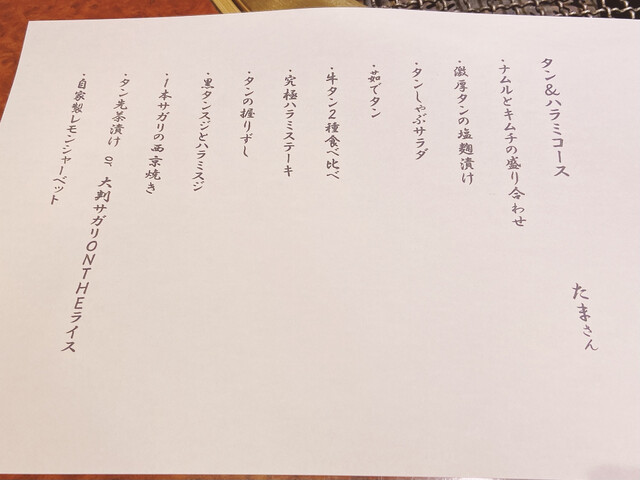 タン&ハラミコース
・ナムルとキムチの盛り合わせ
・激厚タンの塩麹漬け
・タンしゃぶサラダ
・茹でタン
・牛タン2種食べ比べ
・究極ハラミステーキ
・タンの握りずし
・黒タンスジとハラミスジ
・1本サガリの西京焼き
・タン先茶漬け or 大判サガリONTHEライス
・自家製レモンシャーベット
たまさん